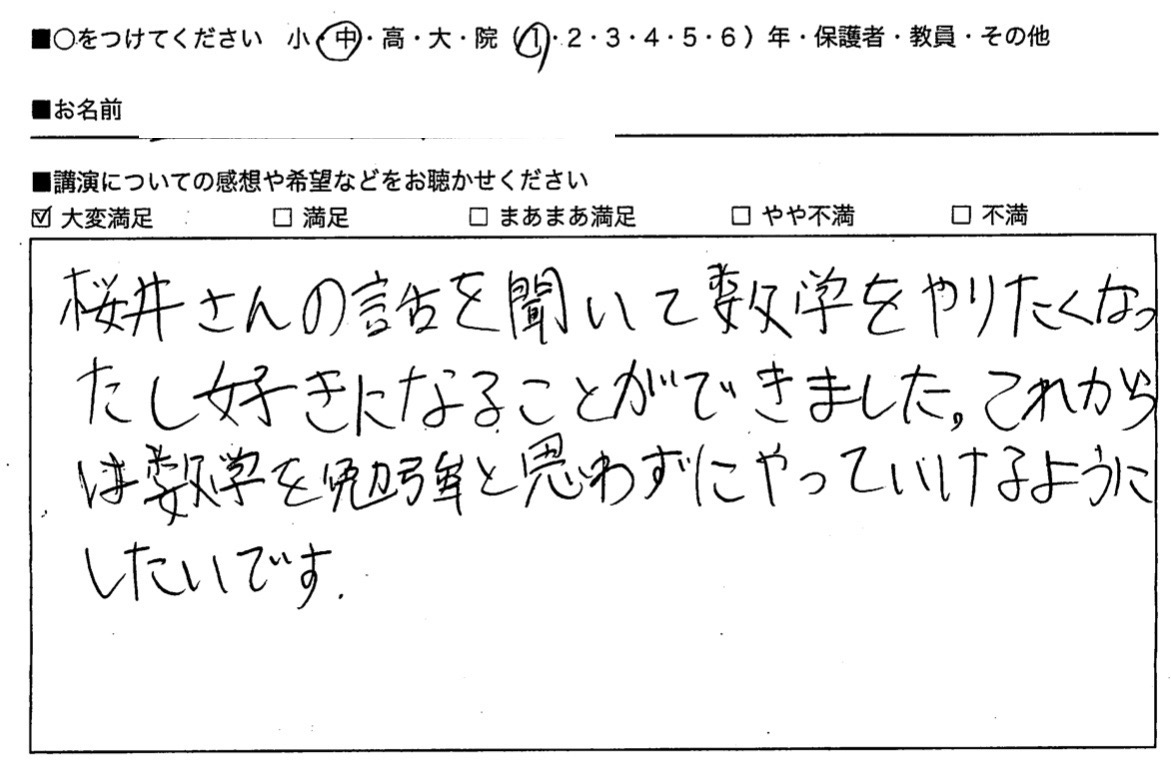 ■○をつけてください　小・中・高・大・院（1・2・3・4・5・6）年・保護者・教員・その他
■お名前
■講演についての感想や希望などをお聴かせください
☑ 大変満足　□ 満足　□ まあまあ満足　□ やや不満　□ 不満
桜井さんの話を聞いて数学をやりたくなっ
たし好きになることができました。これから
は数学を勉強と思わずにやっていけるように
したいです.